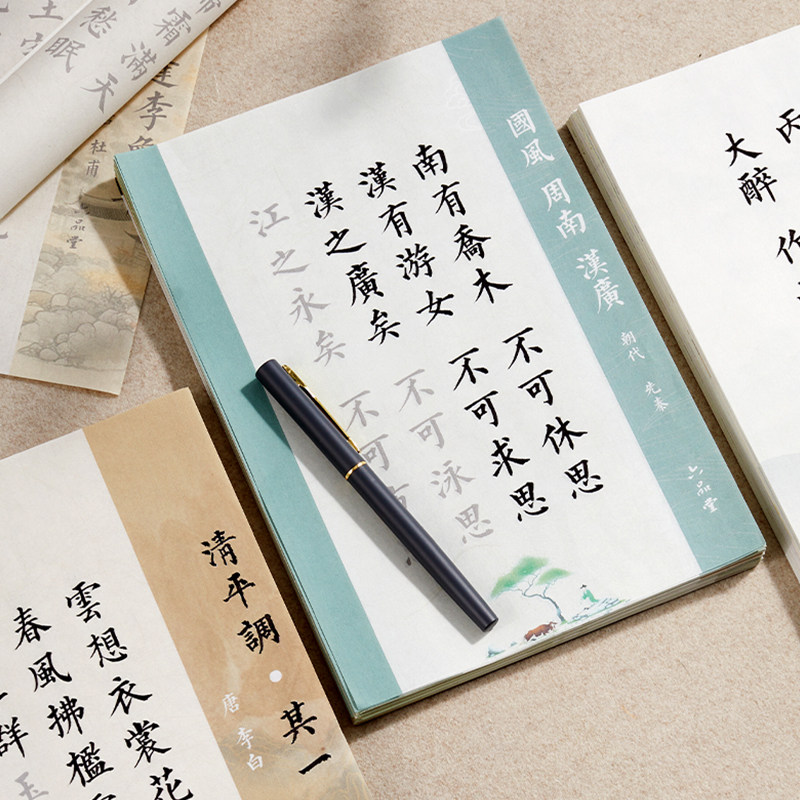 國風 周南 漢廣
朝代 先秦
六品堂
南有喬木 不可休思
漢有游女 不可求思
漢之廣矣 不可泳思
江之永矣 不可
清平調·其一
唐 李白
雲想衣裳花
春風拂檻
群
玉
霜滿天
愁眠
李
杜甫
六品堂
丙
大醉 作